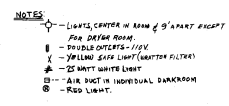 NOTES
- LIGHTS, CENTER IN ROOM & 9' APART EXCEPT
FOR DRYER ROOM.
- DOUBLE OUTLETS - 110V.
X - YELLOW SAFE LIGHT (WRATTEN FILTER)
- 25 WATT WHITE LIGHT
-- AIR DUCT IN INDIVIDUAL DARKROOM
R - RED LIGHT.